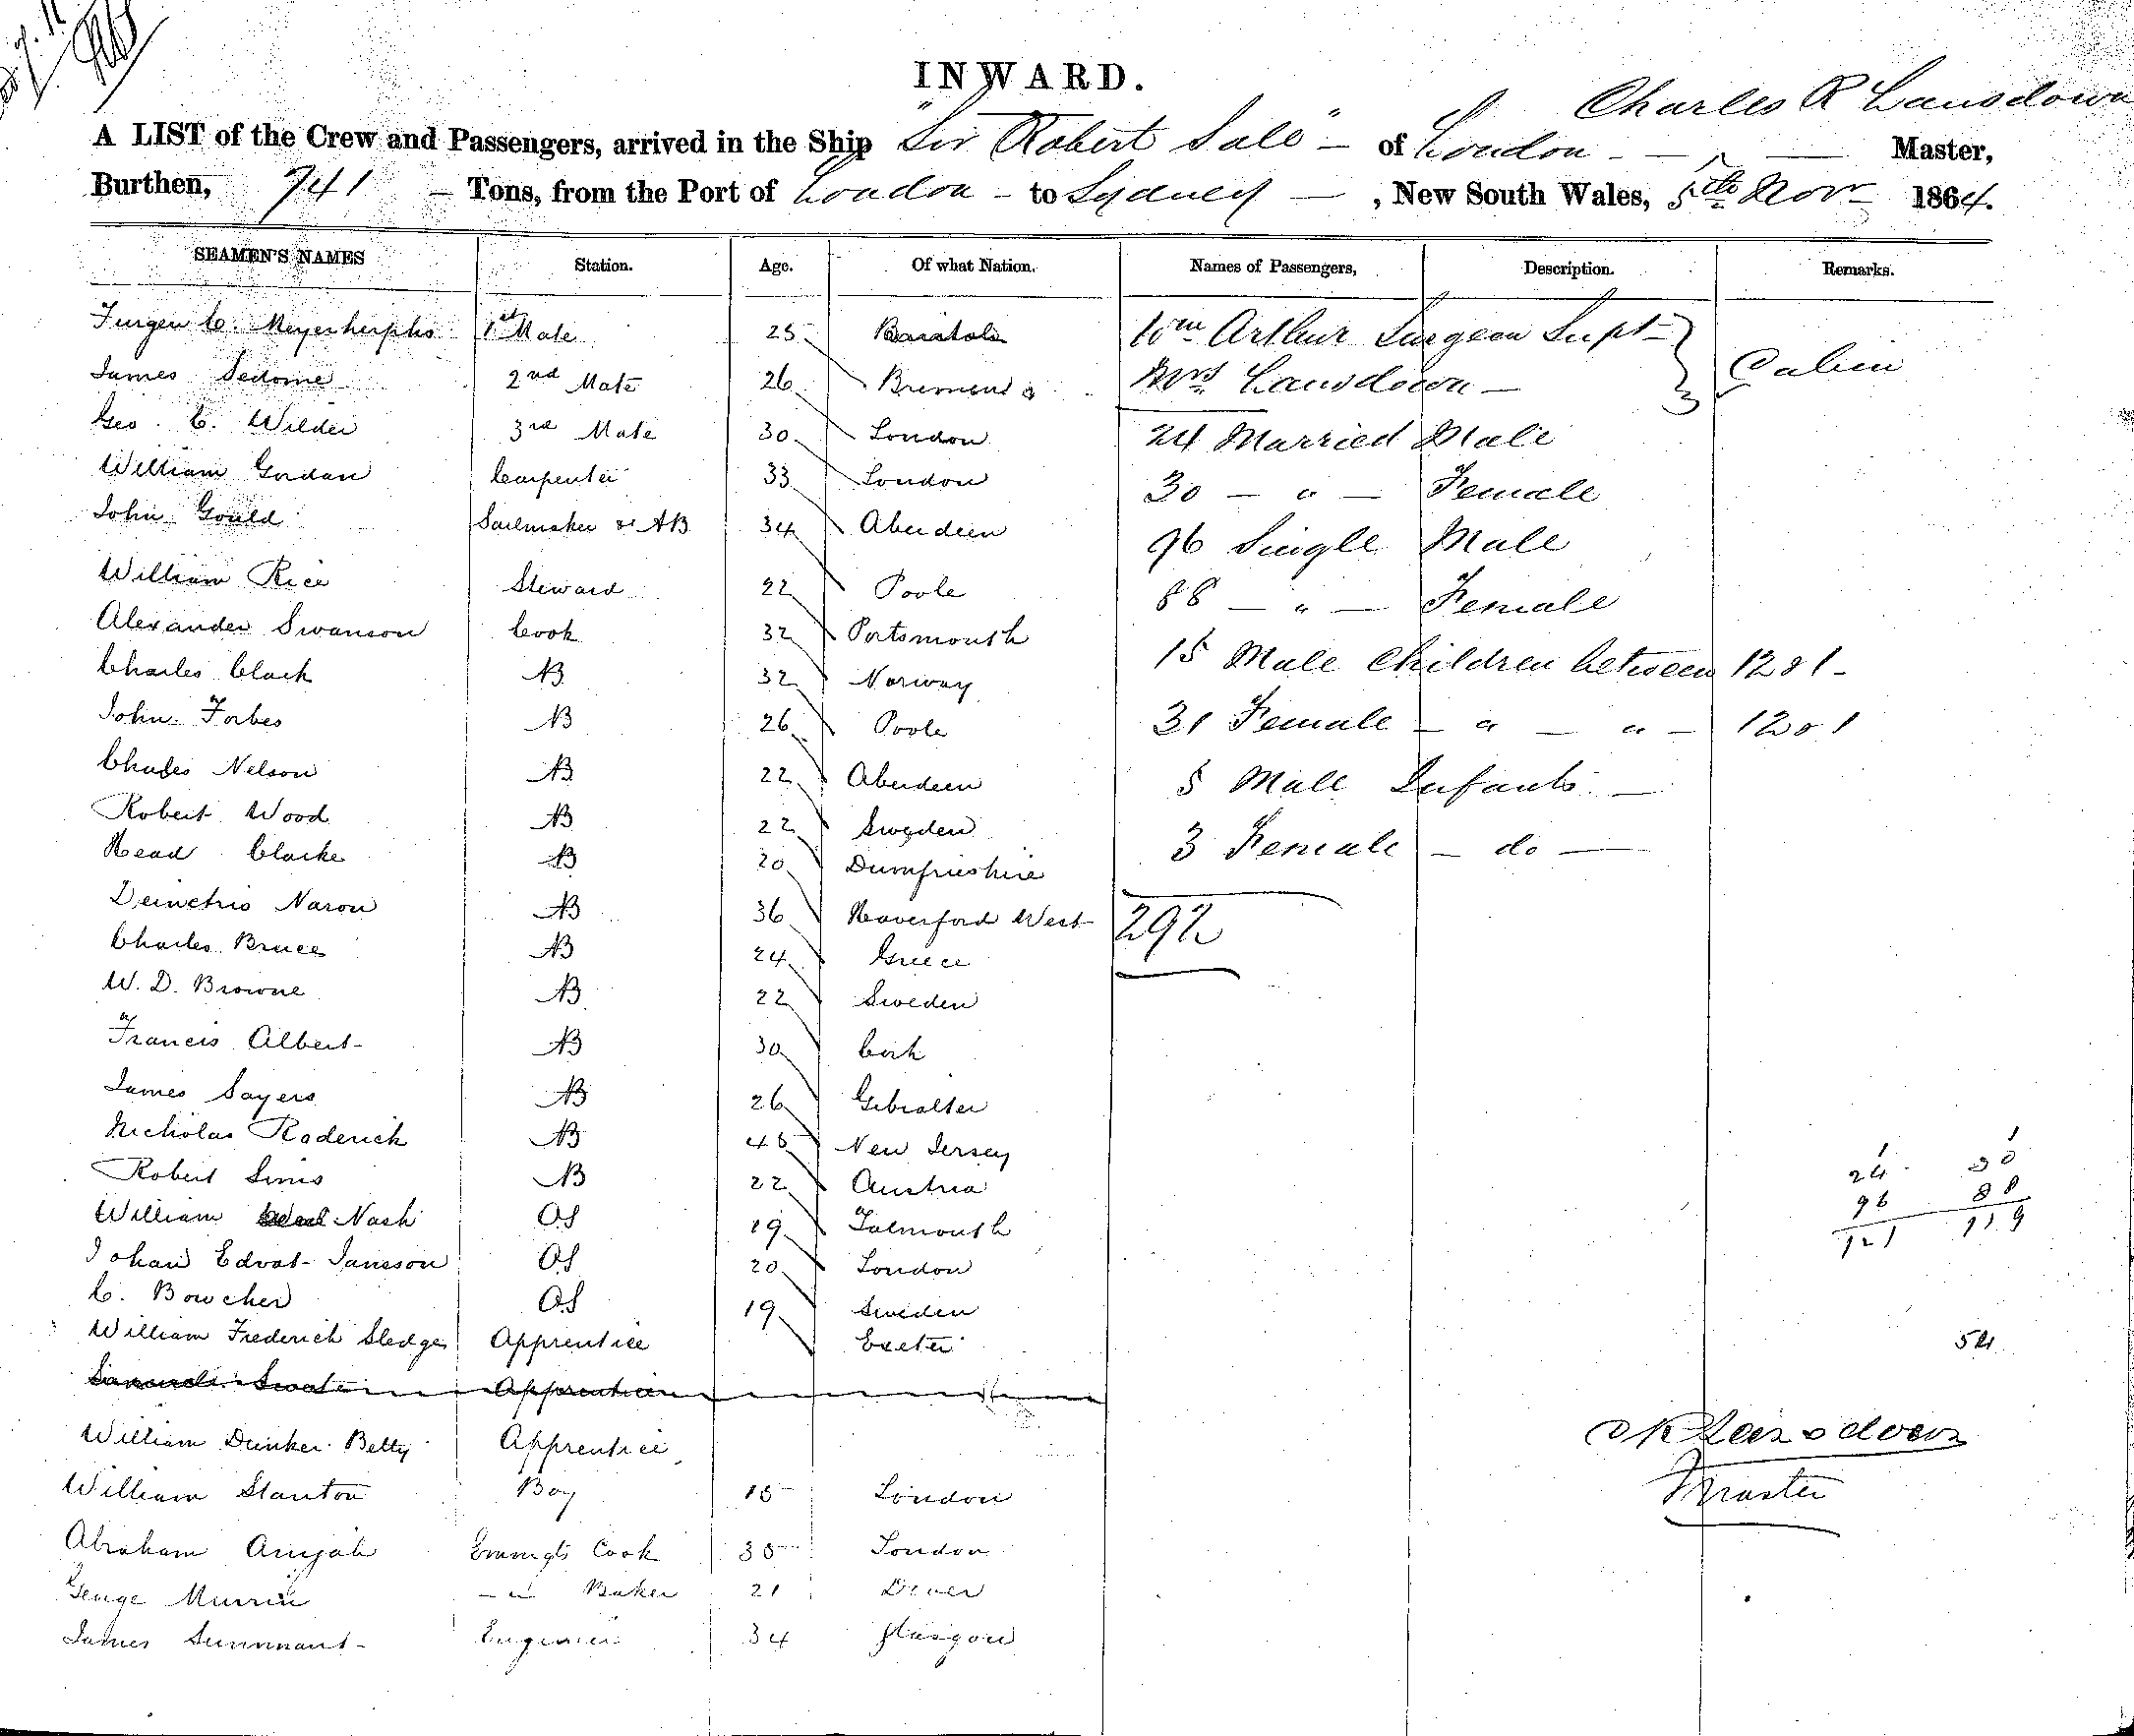 INWARD.
Charles R Lansdown
A LIST of the Crew and Passengers, arrived in the Ship "Sir Robert Sale" of London Master,
Burthen, 741 Tons, from the Port of London to Sydney, New South Wales, 5th Novr 1864.
SEAMEN'S NAMES Station. Age. Of what Nation. Names of Passengers, Description. Remarks.
Jurgen C. 1st Mate 25 Wm Arthur Surgeon Supt
James 2nd Mate 26 Bremen Mrs Lansdown Cabin
Geo. C. Wilder 3rd Mate 30 London 24 Married Male
William Gordan Carpenter 33 London 30 " Female
John Gould Sailmaker & AB 34 Aberdeen 96 Single Male
William Rice Steward 22 Poole 88 " Female
Alexander Swanson Cook 32 Portsmouth
Charles Clark AB 32 Norway 15 Male Children between 12 & 1
John Forbes AB 26 Poole 31 Female " " 12 & 1
Charles Nelson AB 22 Aberdeen 5 Male Infants
Robert Wood AB 22 Sweden
Head Clarke AB 20 Dumfrieshire 3 Female do
Demetrio Naron AB 36 Haverford West 292
Charles Bruce AB 24 Greece
W. D. Browne AB 22 Sweden
Francis Albert AB 30 Cork
James Sayers AB 26 Gibralter
Nicholas Roderick AB 45 New Jersey
Robert Sims AB 22 Austria
William Nash OS 19 Falmouth
Johan Edvat Janson OS 20 London
C. Bowcher OS 19 Sweden
William Frederick Sledge Apprentice Exeter
Apprentice
William Dunker Betty Apprentice
William Stanton Boy 15 London
Abraham Emmigts Cook 35 London
George Murrin " Baker 21 Dover
James Engineer 34 Glasgow
1 1
24 30
96 88
121 119
54
C R Lansdown
Master